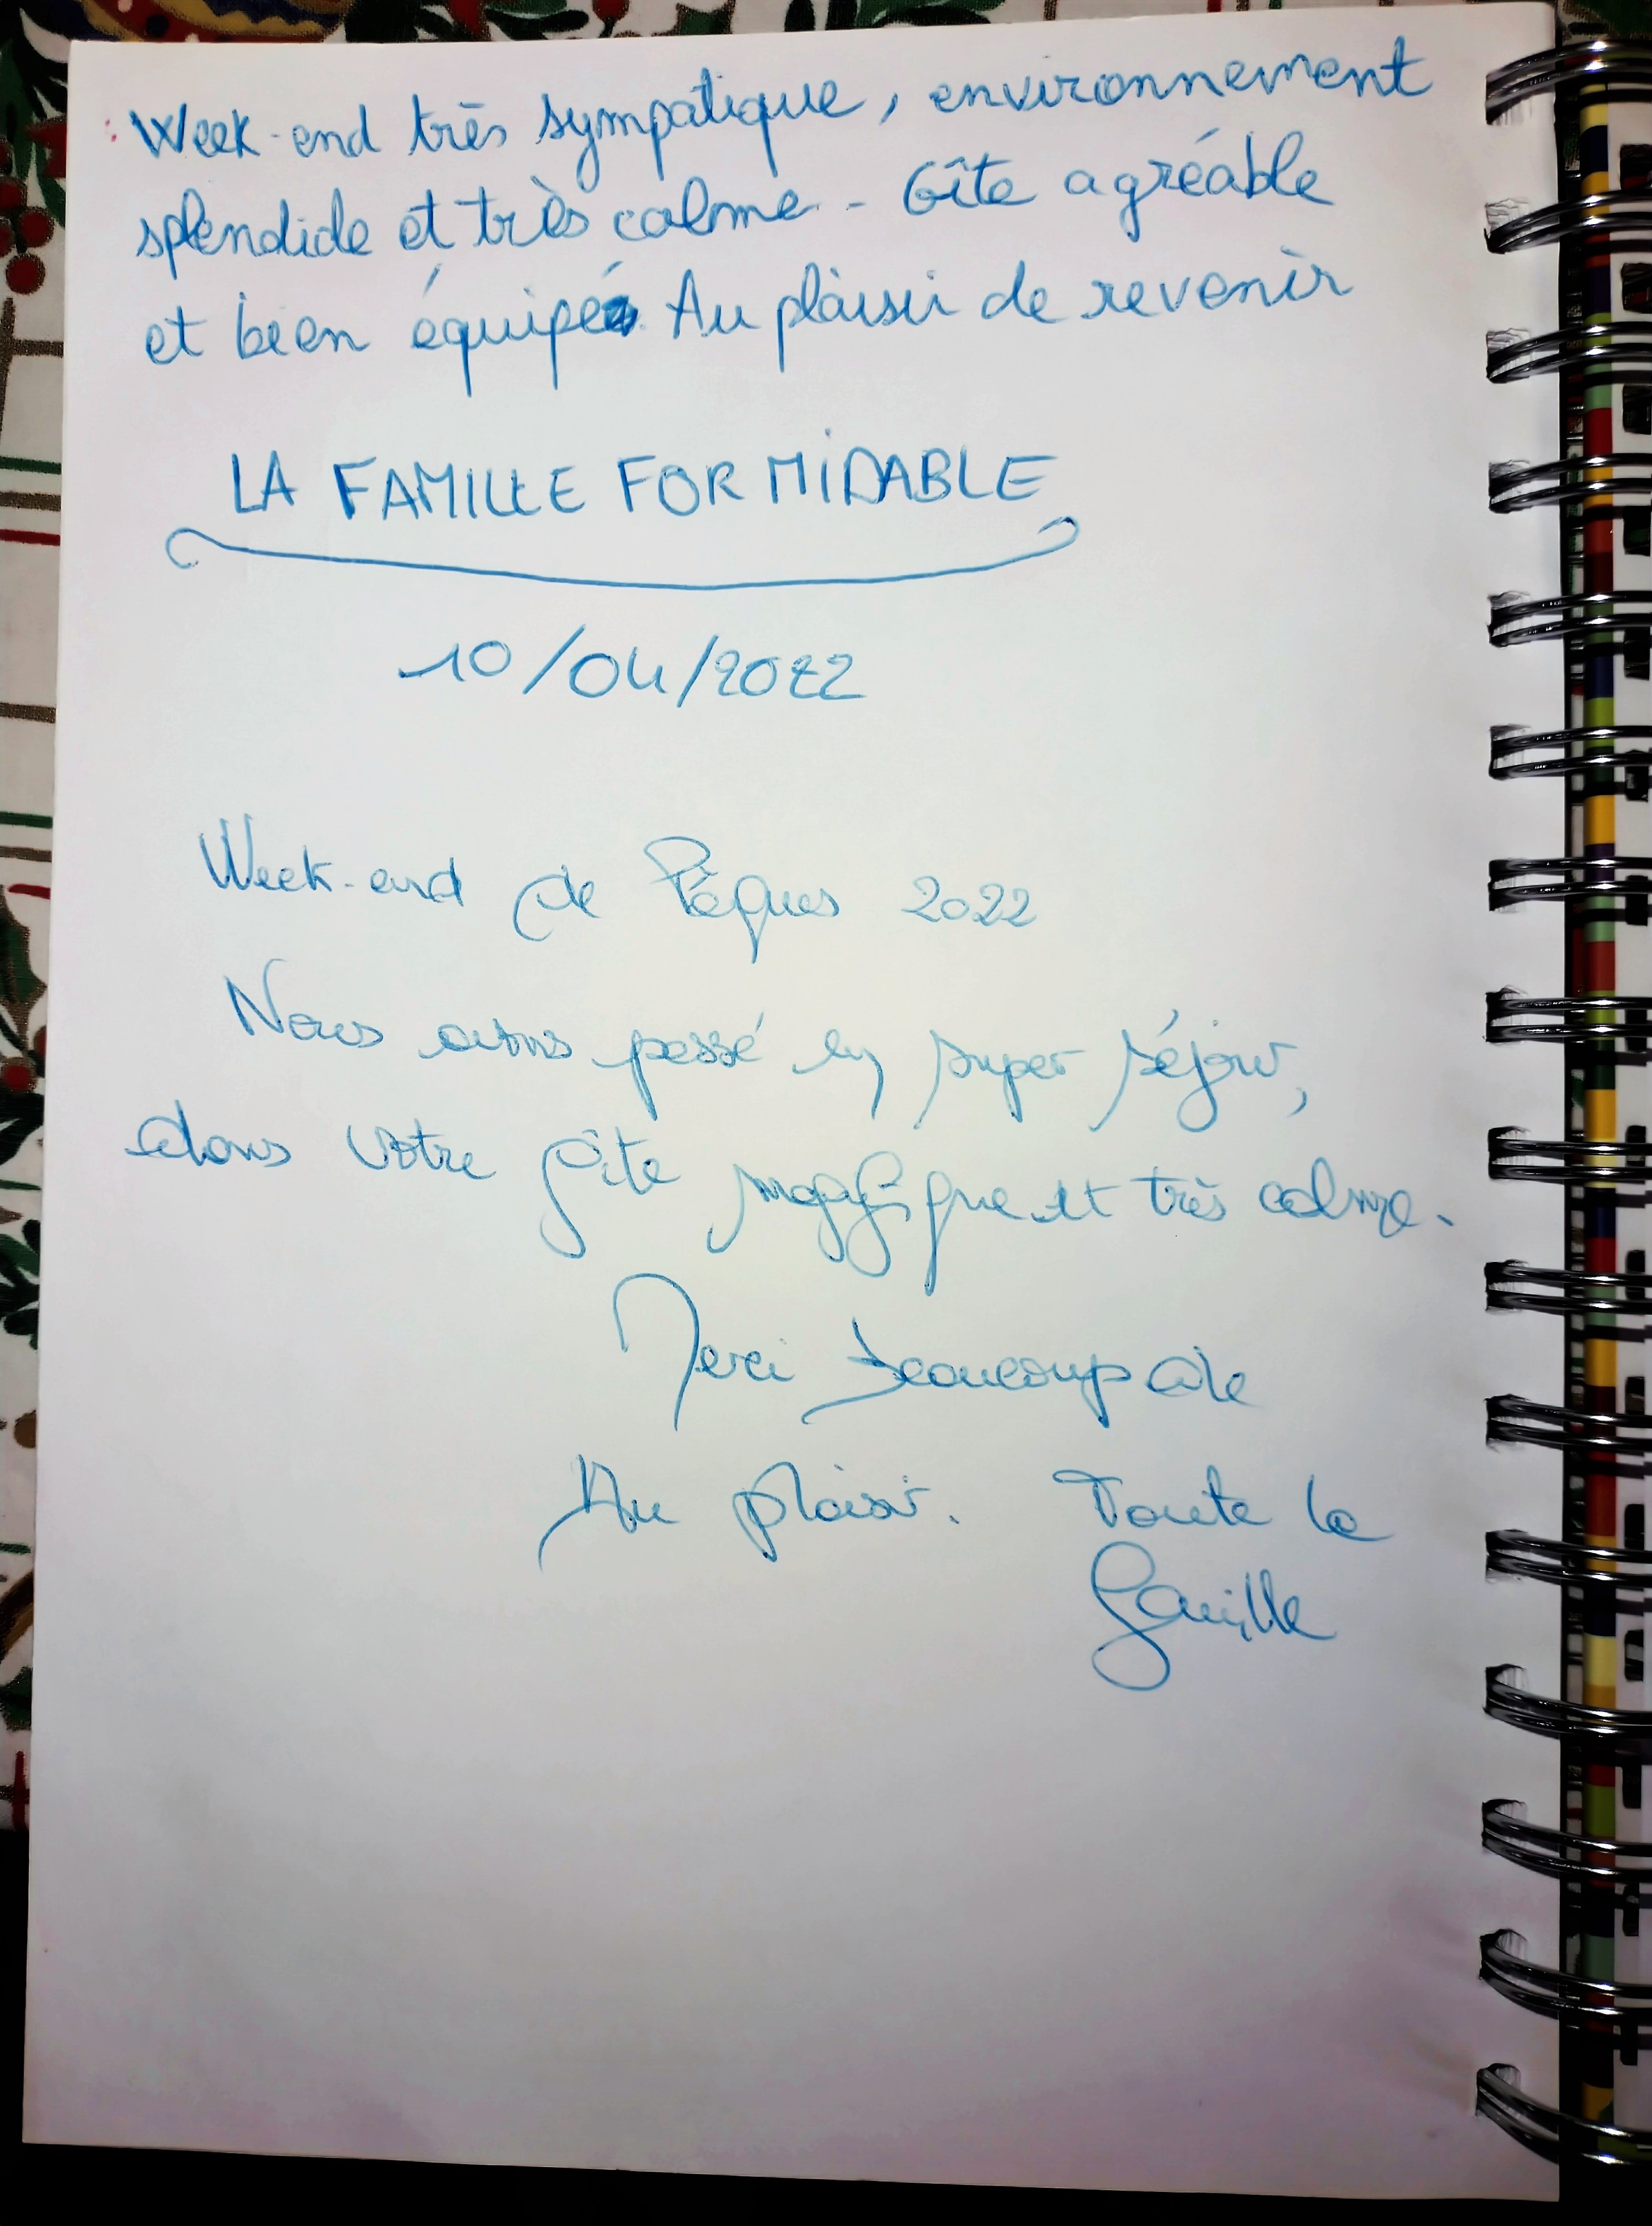 Week-end très sympatique, environnement
splendide et très calme - Gîte agréable
et bien équipé. Au plaisir de revenir
LA FAMILLE FORMIDABLE
10/04/2022
Week-end de Pâques 2022
Nous avons passé un super séjour,
dans votre gîte magnifique et très calme.
Merci beaucoup
Au plaisir. Toute la
famille